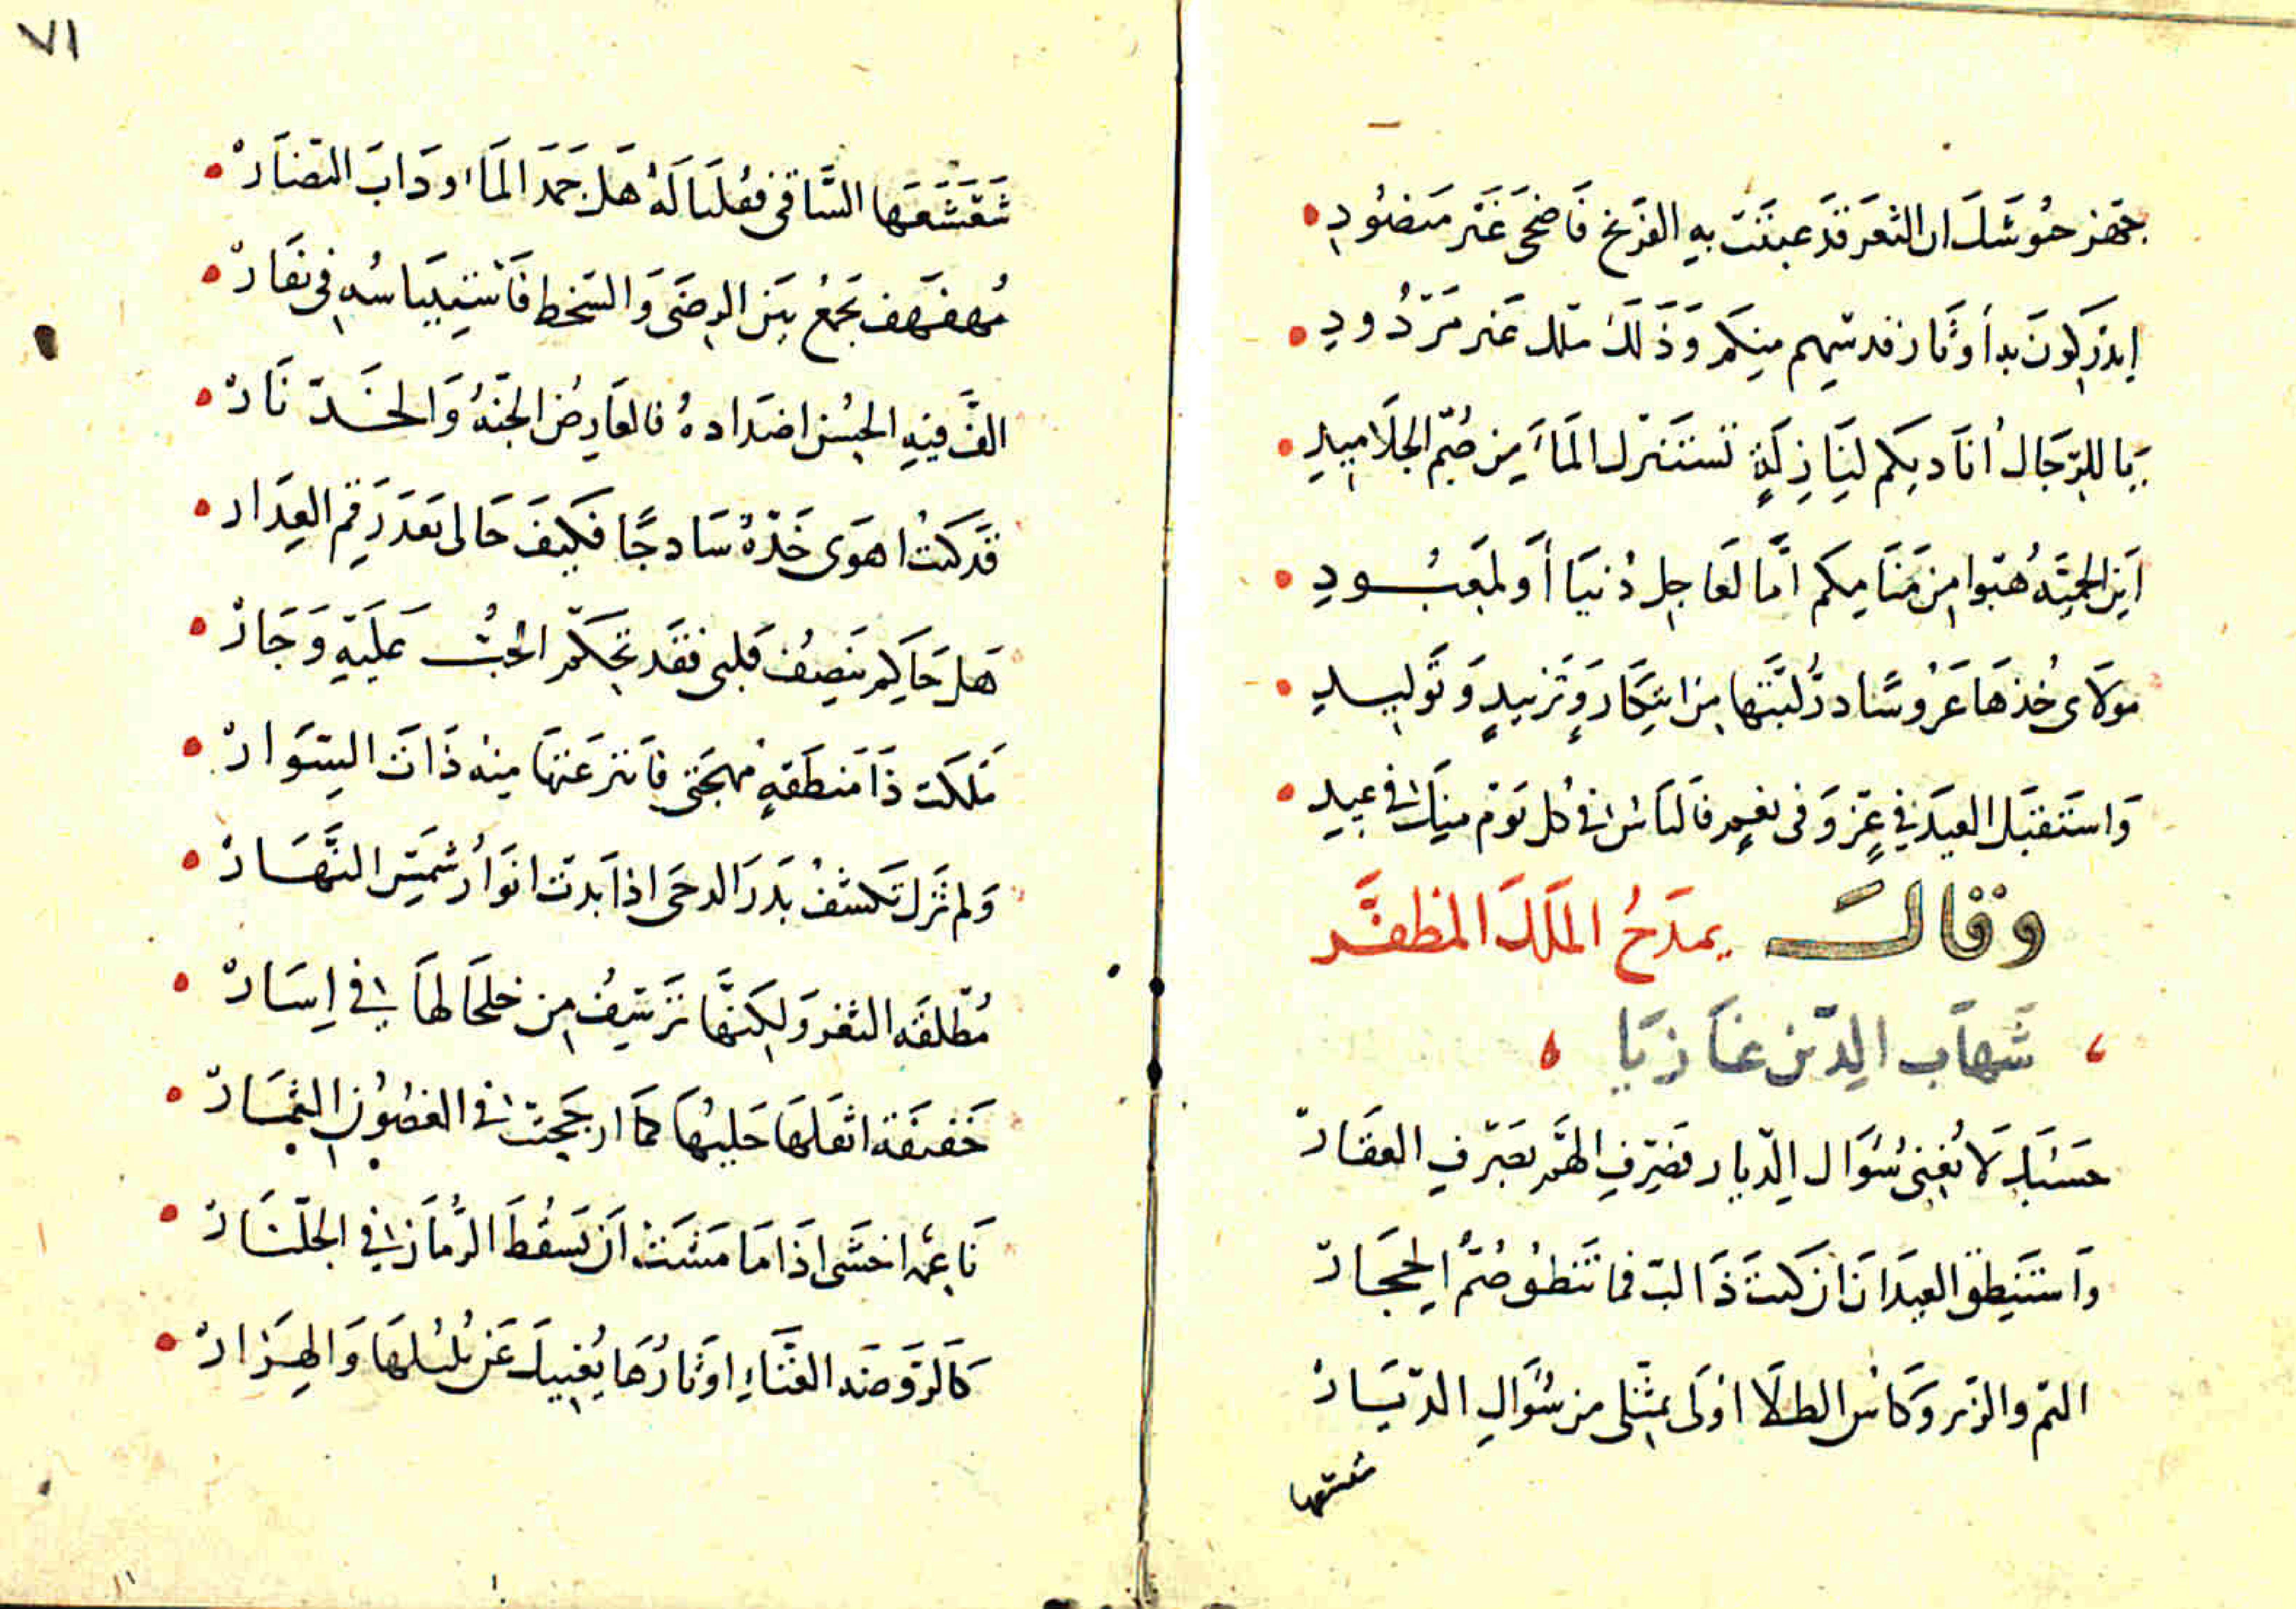 جهز جيوشك ان الثغر قد عبثت به الفرنج فاضحى غير منضود
ايدركون بدا وثار قديهم منكم وذلك ملك غير مردود
يا للرجال أناديكم لنازلة تستنزل الماء من صم الجلاميد
اين الحمية هبوا من منامكم اما لعاجل دنيا أو لمعبود
مولاى خذها عروسا در لبتها من ابتكار وتزييد وتوليد
واستقبل العيد في عز وفى نعم فالناس في كل يوم منك في عيد
وقال يمدح الملك المظفر
شهاب الدين غازيا
حسبك لا يغنى سؤال الديار فصرف الهم بصرف العقار
واستنطق العيدان ان كنت ذا لب فما تنطق صم الحجار
البم والزير وكاس الطلا اولى بمثلى من سؤال الديار
شعشعها
٧١
شعشعها الساقى فقلنا له هل جمد الماء او داب النضار
مهفهف يجمع بين الرضى والسخط فاستيناسه فى نفار
الف فيه الحسن اضداده فالعارض الجنة والخد نار
قد كنت اهوى خده سادجا فكيف حالى بعد رقم العدار
هل حاكم ينصف قلبى فقد تحكم الحب عليه وجار
ملكت ذا منطقة مهجتى فانتزعتها منه ذات السوار
ولم تزل تكشف بدر الدجى اذا بدت انوار شمس النهار
مطلقة الثغر ولكنها ترسف من خلخالها في اسار
خفيفة اثقلها حليها كما ارجحنت في الغصون الثمار
ناعمة اخشى اذا ما مشت ان يسقط الرمان في الجلنار
كالروضة الغناء اوتارها يغنيك عن بلبلها والهزار